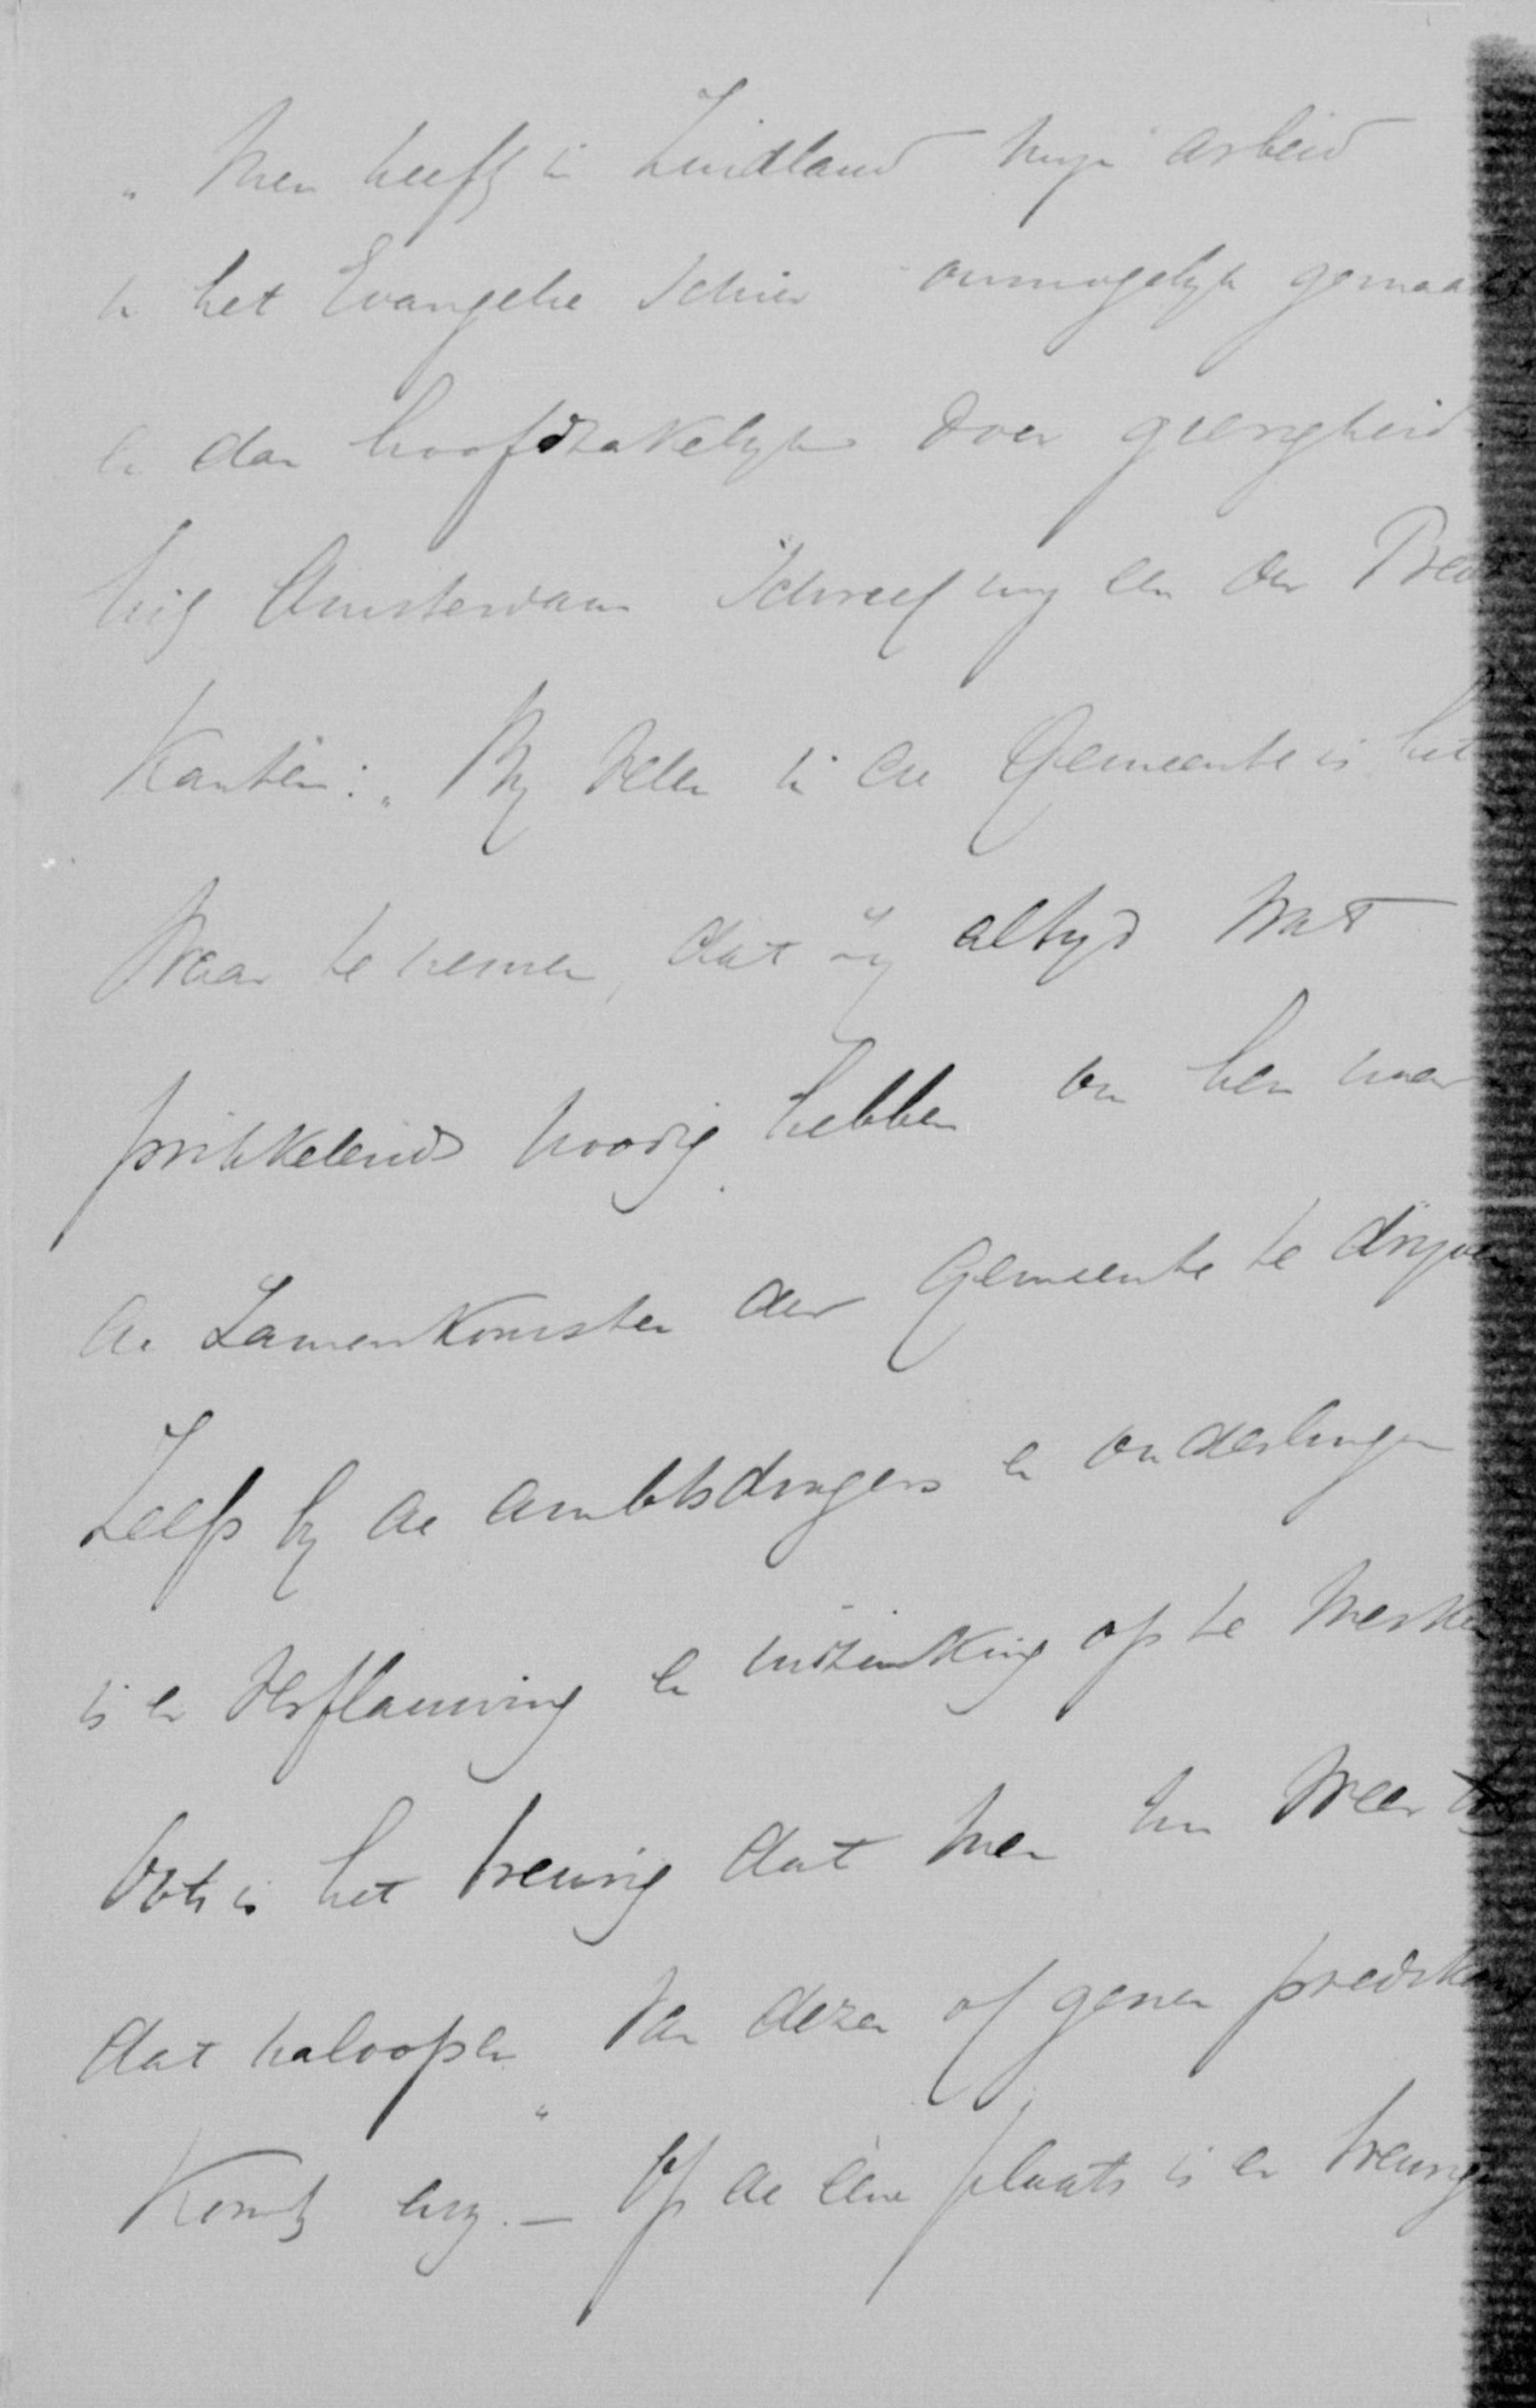 „ Men heeft in Zuidland mijn arbeid
in het Evangelie schier onmogelijk gemaakt
en dan hoofdzakelijk door gierigheid.
Uit Amsterdam schreef mij een der
: „ Bij velen in die Gemeente is het
waar te nemen, dat zij altijd wat
prikkelends noodig hebben om hen naar
de Zamenkomsten der Gemeente te drijven
Zelfs bij de ambtsdragers en onderlingen
is er verflauwing en inzinking op te merken
Ook is het treurig dat men nu weer
dat naloopen van dezen of genen
Komt enz. — Op de eene plaats is er